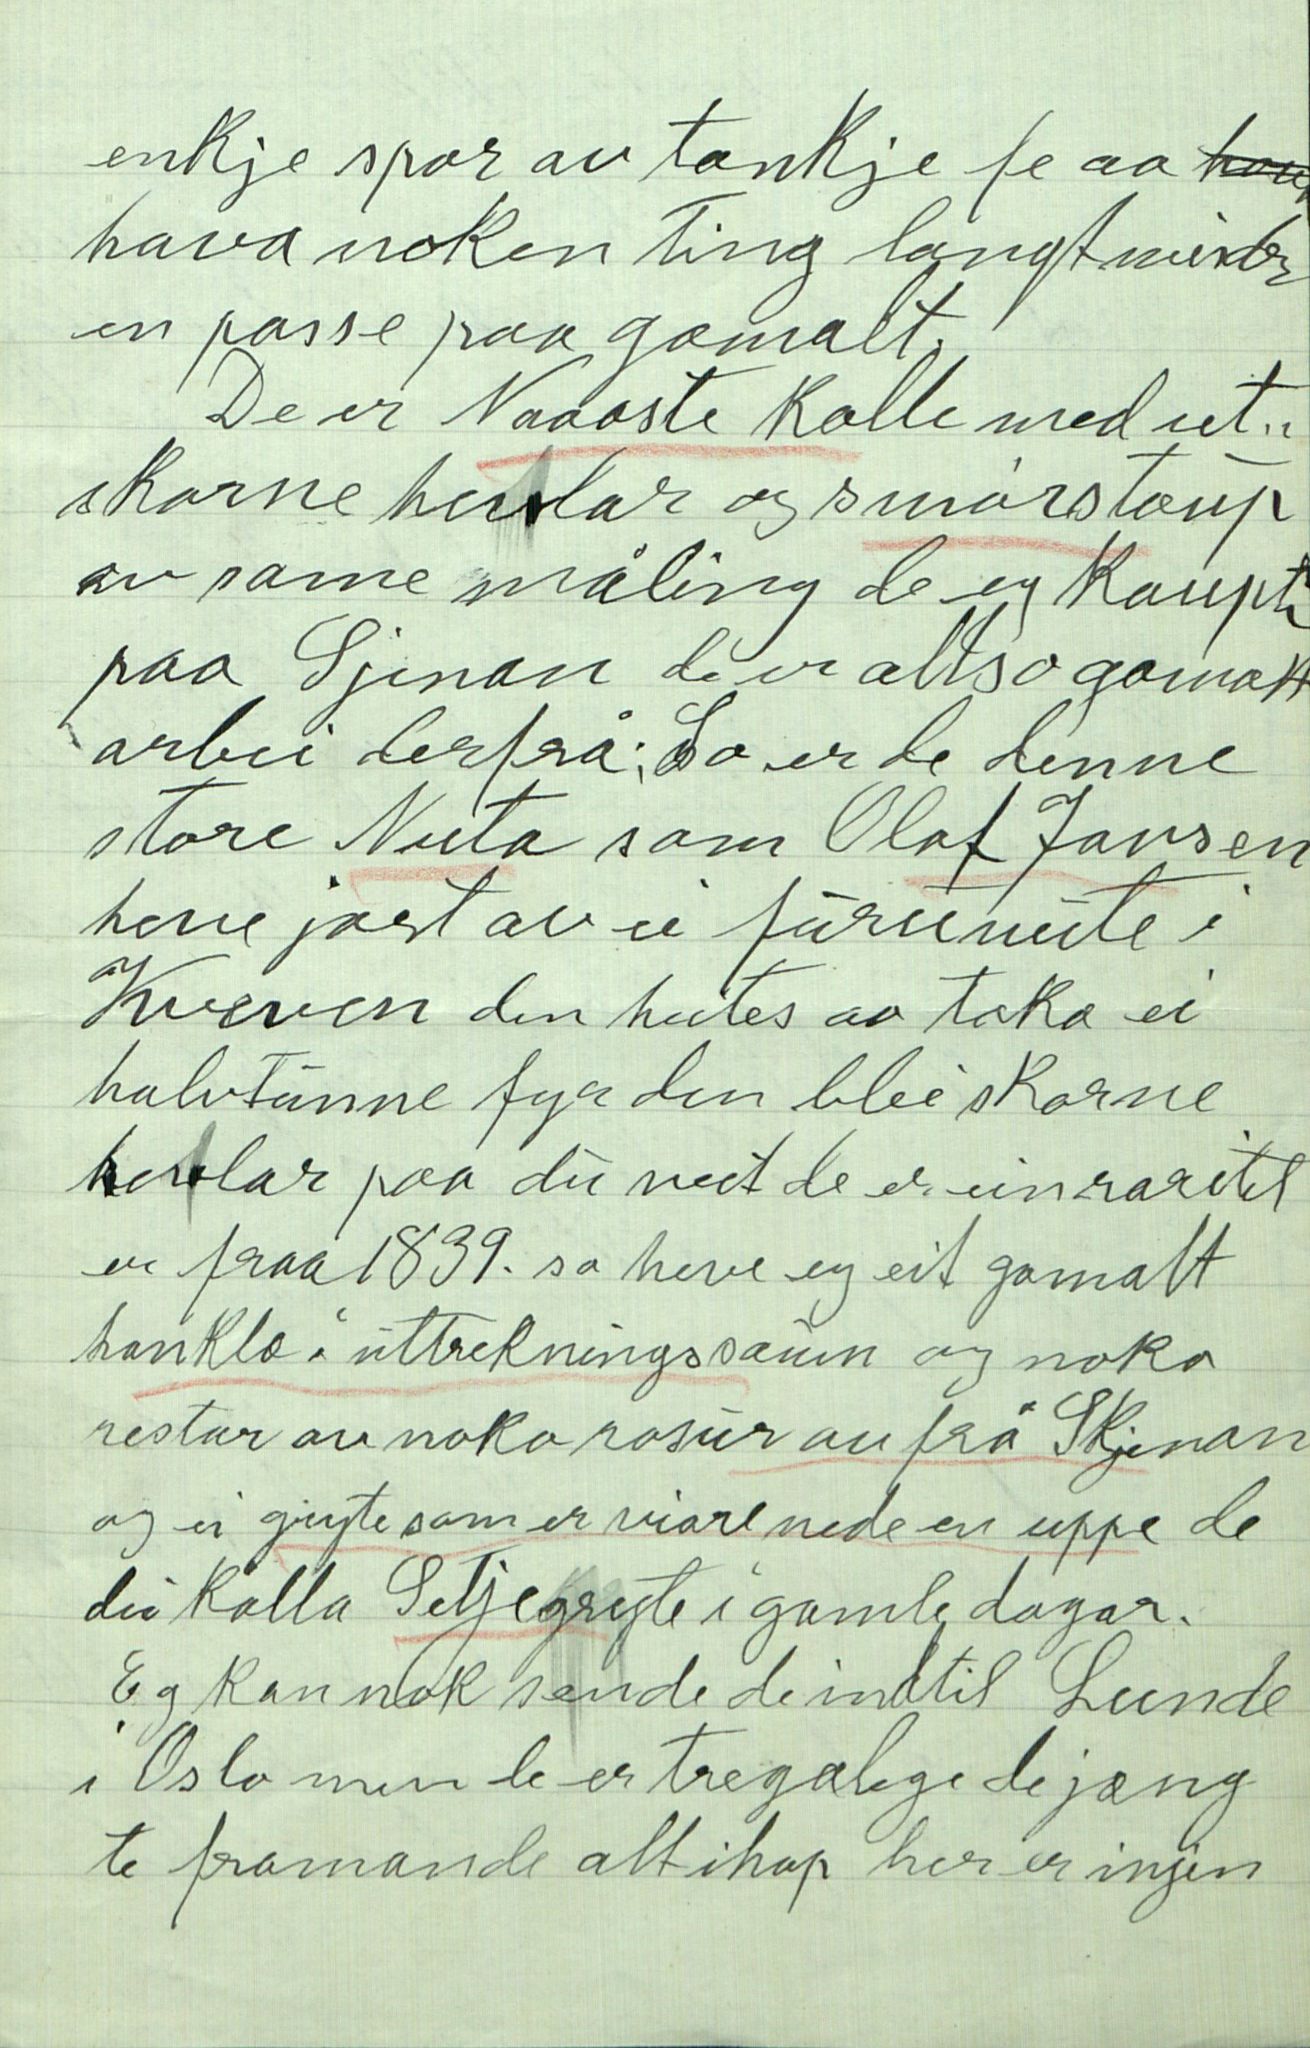 enkje spor av tankje fe aa hava
hava noken Ting langt mindr
en passe paa gamalt.
De er Naaoste Kolle med ut"
skorne herlar og smørstaup
av same måling de eg Kaupte
paa Sjenan de er altso gamalt
arbei derfrå; So er de denne
store Nuta som Olaf Jansen
heve jort av ei fürunute i
Kverven den heites ao taka ei
halvtünne fyr den blei skorne
herlar paa dü veit de er ein raritet
er fraa 1839. so heve eg eit gamalt
hanklæ i üttrekningssaüm og noko
restar av noko rosür au frå Skjenan
og ei gryte som er viare nede en uppe de
dei kalla Setjegryte i gamle dagar.
Eg kan nok sende de indtil Lunde
i Oslo men de er tregelege de jæng
te framande alt ihop her er injen